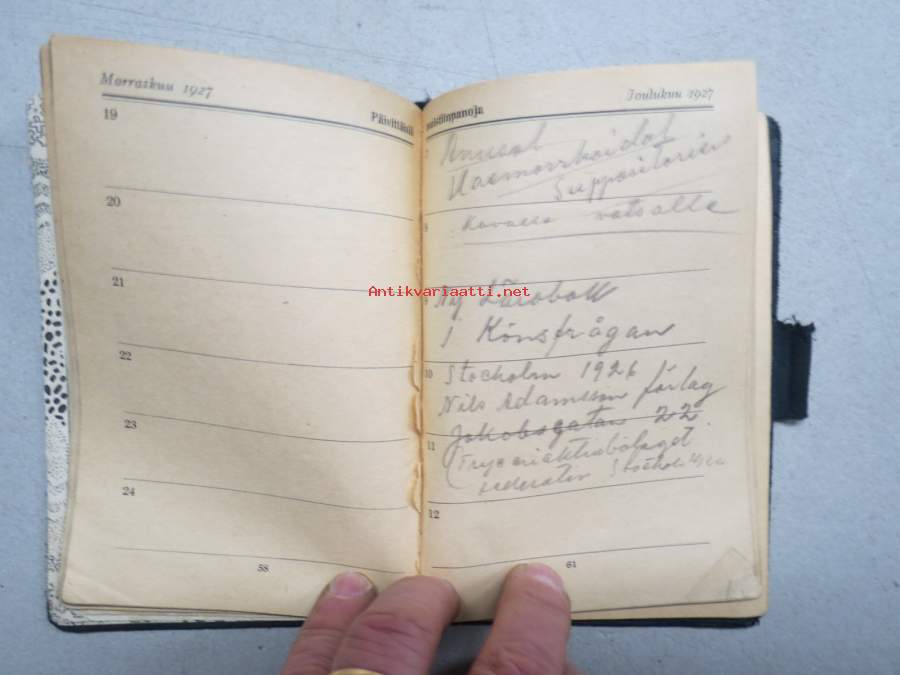 Marraskuu 1927
Päivittäisiä
19
20
21
22
23
24
58
muistiinpanoja
Joulukuu 1927
7
Anusol
Haemorrhoidal
Suppositorier
8
watsalla
Antikvariaatti.net
9 Ny Lärobok
i Könsfrågan
10 Stocholm 1926
Nils Adamsson förlag
Jakobsgatan 22
11
(Tryckeriaktiebolaget
12
61